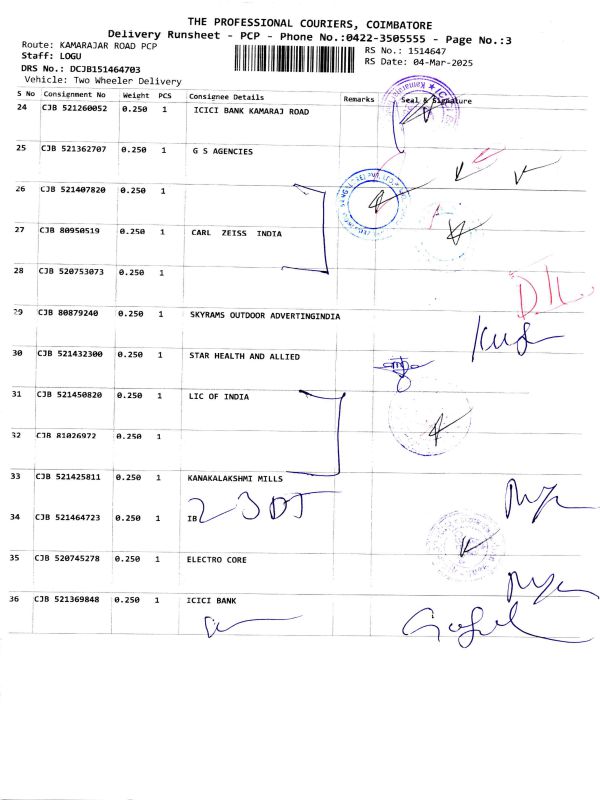 THE PROFESSIONAL COURIERS, COIMBATORE
Delivery Runsheet - PCP - Phone No.:0422-3505555 - Page No.:3
Route: KAMARAJAR ROAD PCP
RS No.: 1514647
Staff: LOGU
RS Date: 04-Mar-2025
DRS No.: DCJB151464703
Vehicle: Two Wheeler Delivery
S No Consignment No Weight PCS Consignee Details Remarks Seal & Signature
24 CJB 521260052 0.250 1 ICICI BANK KAMARAJ ROAD
25 CJB 521362707 0.250 1 G S AGENCIES
26 CJB 521407820 0.250 1
27 CJB 80950519 0.250 1 CARL ZEISS INDIA
28 CJB 520753073 0.250 1
29 CJB 80879240 0.250 1 SKYRAMS OUTDOOR ADVERTINGINDIA
30 CJB 521432300 0.250 1 STAR HEALTH AND ALLIED
31 CJB 521450820 0.250 1 LIC OF INDIA
32 CJB 81026972 0.250 1
33 CJB 521425811 0.250 1 KANAKALAKSHMI MILLS
34 CJB 521464723 0.250 1 IB
35 CJB 520745278 0.250 1 ELECTRO CORE
36 CJB 521369848 0.250 1 ICICI BANK